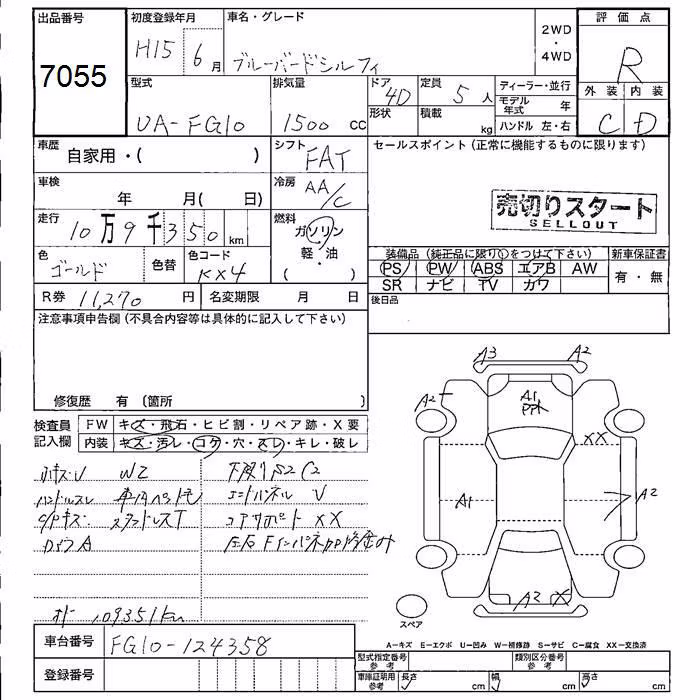 出品番号 初度登録年月 車名・グレード 2WD・4WD 評価点
7055 H15 6月 ブルーバードシルフィ R
型式 排気量 ドア 定員 ディーラー・並行 外装 内装
UA-FG10 1500 cc 4D 5人 モデル年式 年 C D
形状 積載 kg ハンドル 左・右
車歴 自家用・( ) シフト FAT セールスポイント (正常に機能するものに限ります)
車検 年 月( 日) 冷房 AA/C
売切りスタート
SELLOUT
走行 10万9千350 km 燃料 ガソリン・軽・油 ( )
色 ゴールド 色替 色コード KX4
装備品 (純正品に限り○をつけて下さい) 新車保証書
PS PW ABS エアB AW 有・無
SR ナビ TV カワ
R券 11,270 円 名変期限 月 日 後日品
注意事項申告欄 (不具合内容等は具体的に記入して下さい)
修復歴 有 (箇所 )
検査員記入欄 FW キズ・飛石・ヒビ割・リペア跡・X要
内装 キズ・汚レ・コゲ・穴・スレ・キレ・破レ
W2
ハンドルスレ
エンドパネル V
コアサポート XX
109351km
A3 A2
A1
A2
XX
A1 A2
A2 X
スペア
A-キズ E-エクボ U-凹み W-補修跡 S-サビ C-腐食 XX-交換済
車台番号 FG10-124358
登録番号
型式指定番号 参考 類別区分番号 参考
車庫証明用 参考 長さ cm 幅 cm 高さ cm